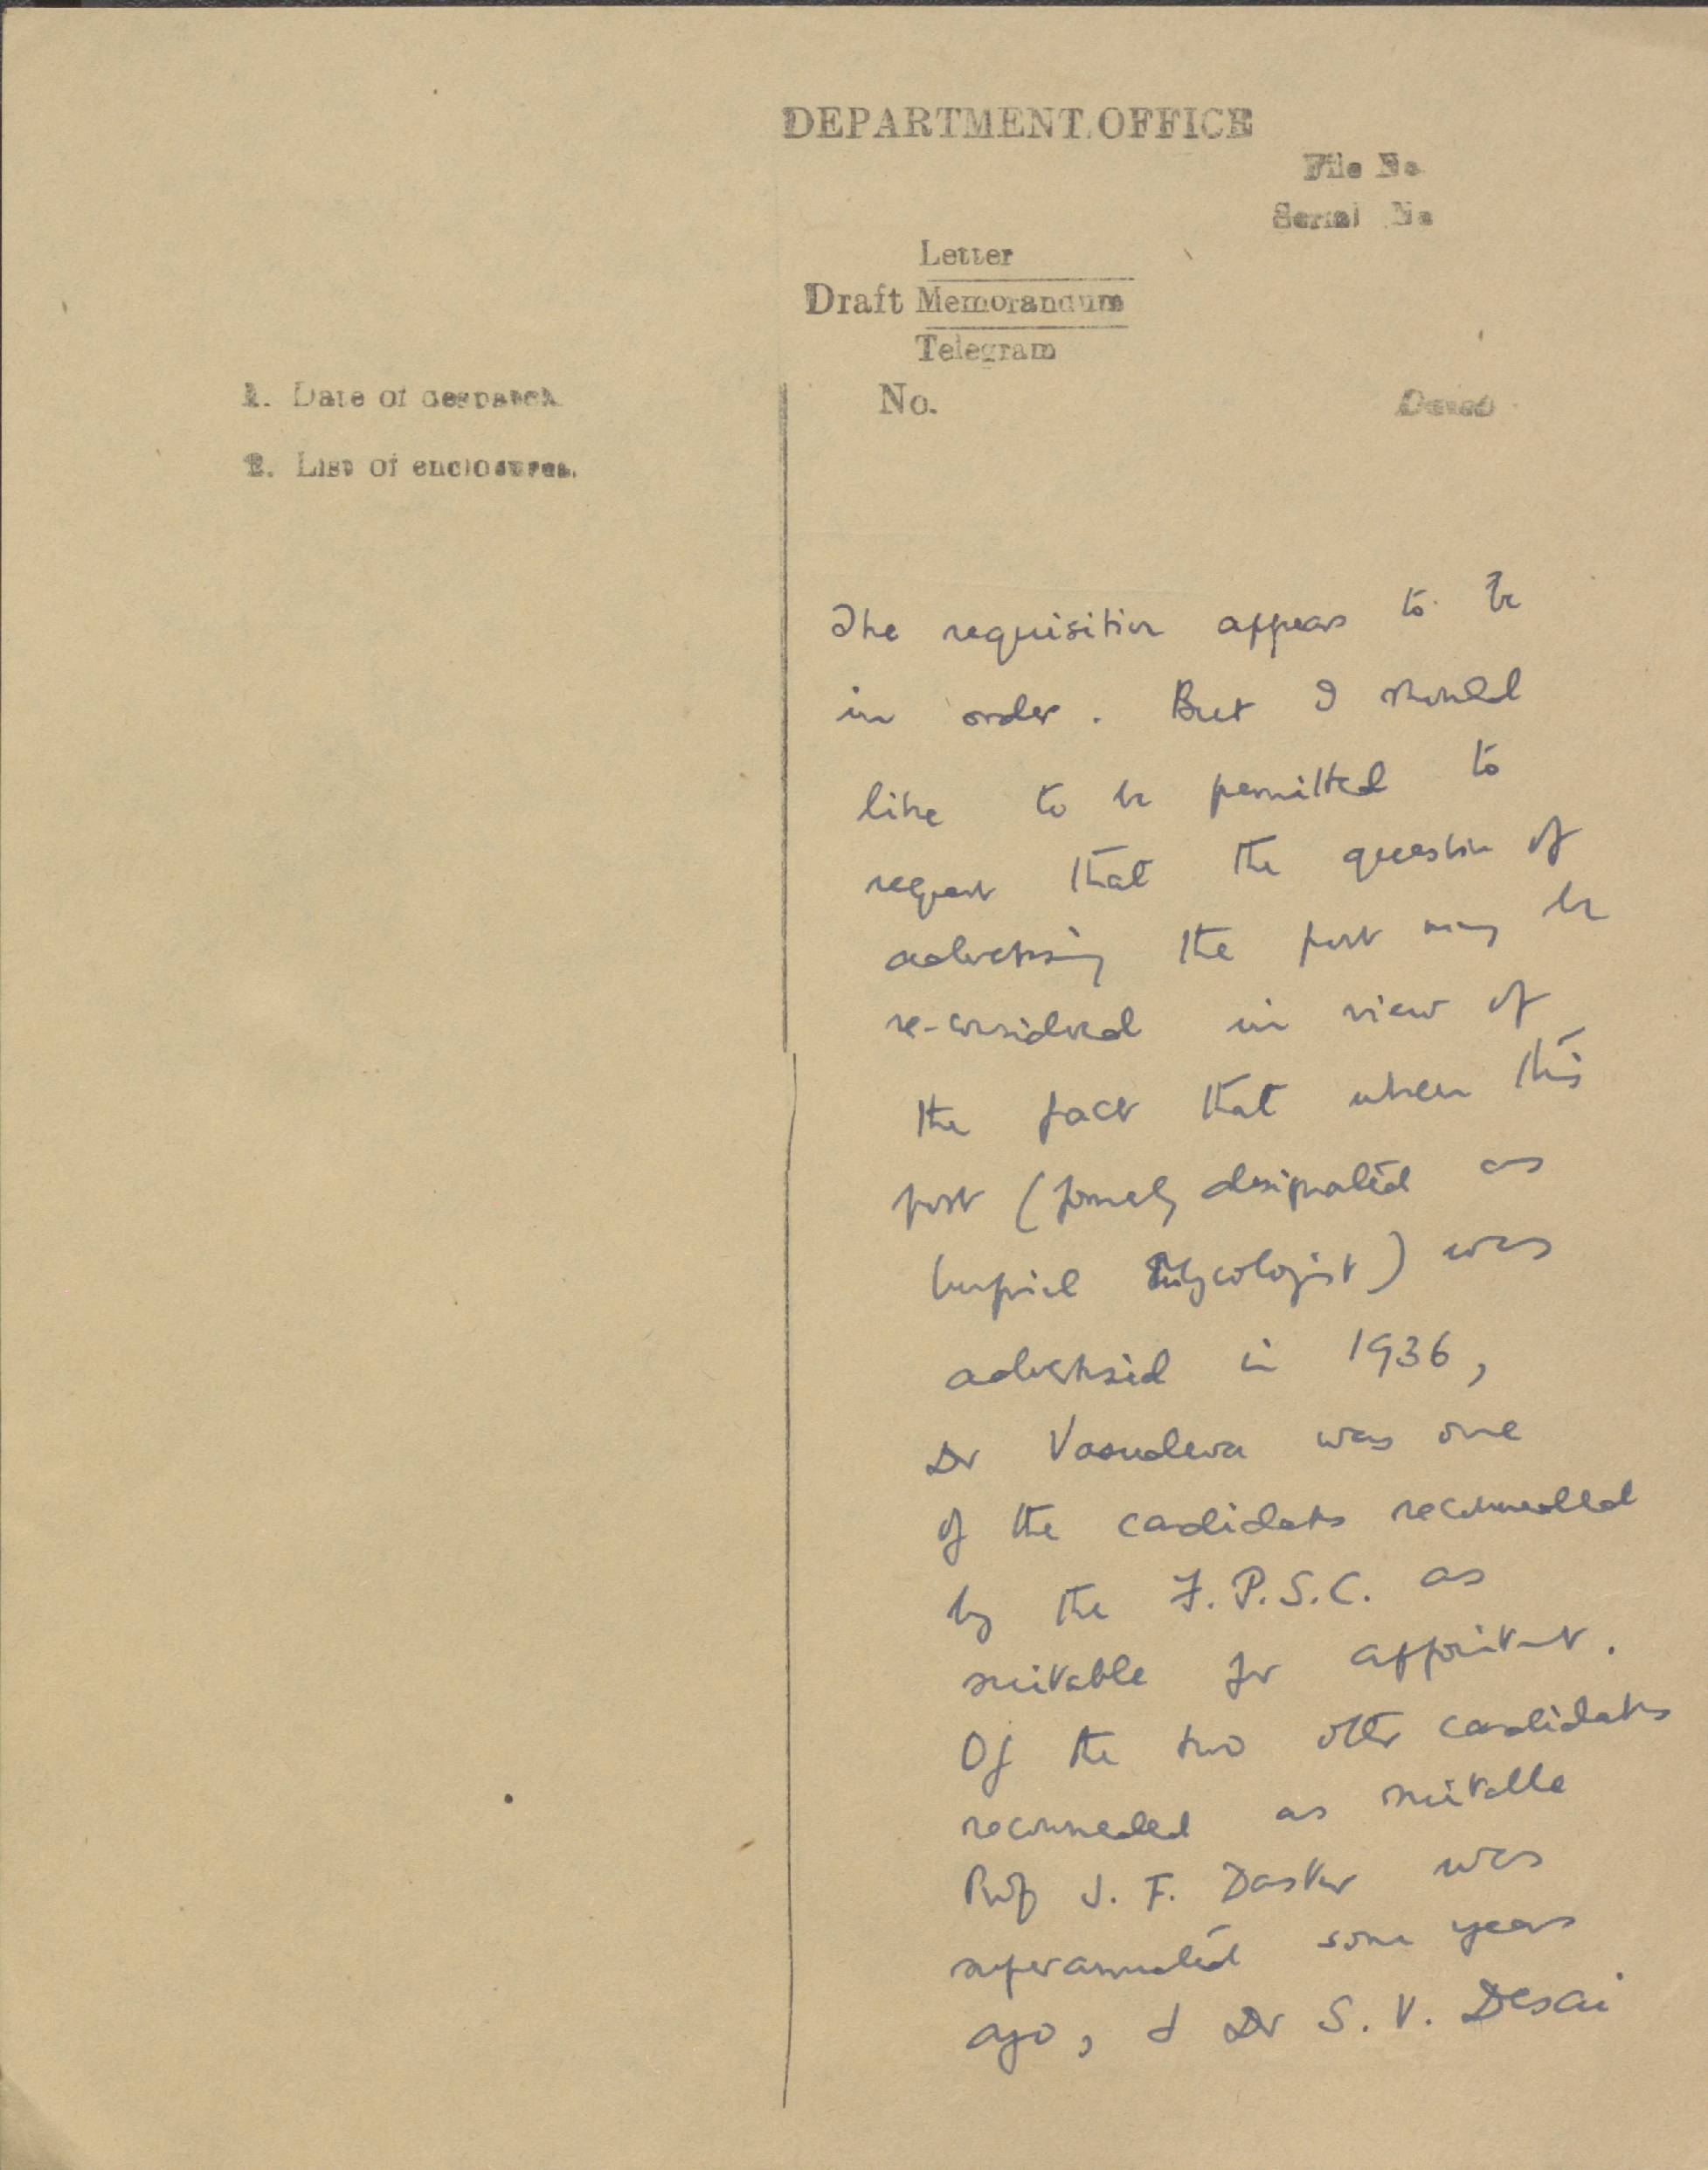 DEPARTMENT OFFICE
File No
Serial No
Letter
Draft Memorandum
Telegram
1. Date of despatch
No.
Dated
2. List of enclosures.
The requisition appears to be
in order. But I should
like to be permitted to
request that the question of
advertising the post may be
re-considered in view of
the fact that when this
post (formerly designated as
Imperial Mycologist) was
advertised in 1936,
Dr Vasudeva was one
of the candidates recommended
by the F.P.S.C. as
suitable for appointment.
Of the two other candidates
recommended as suitable
Prof J. F. Dastur was
superannuated some years
ago, & Dr S. V. Desai